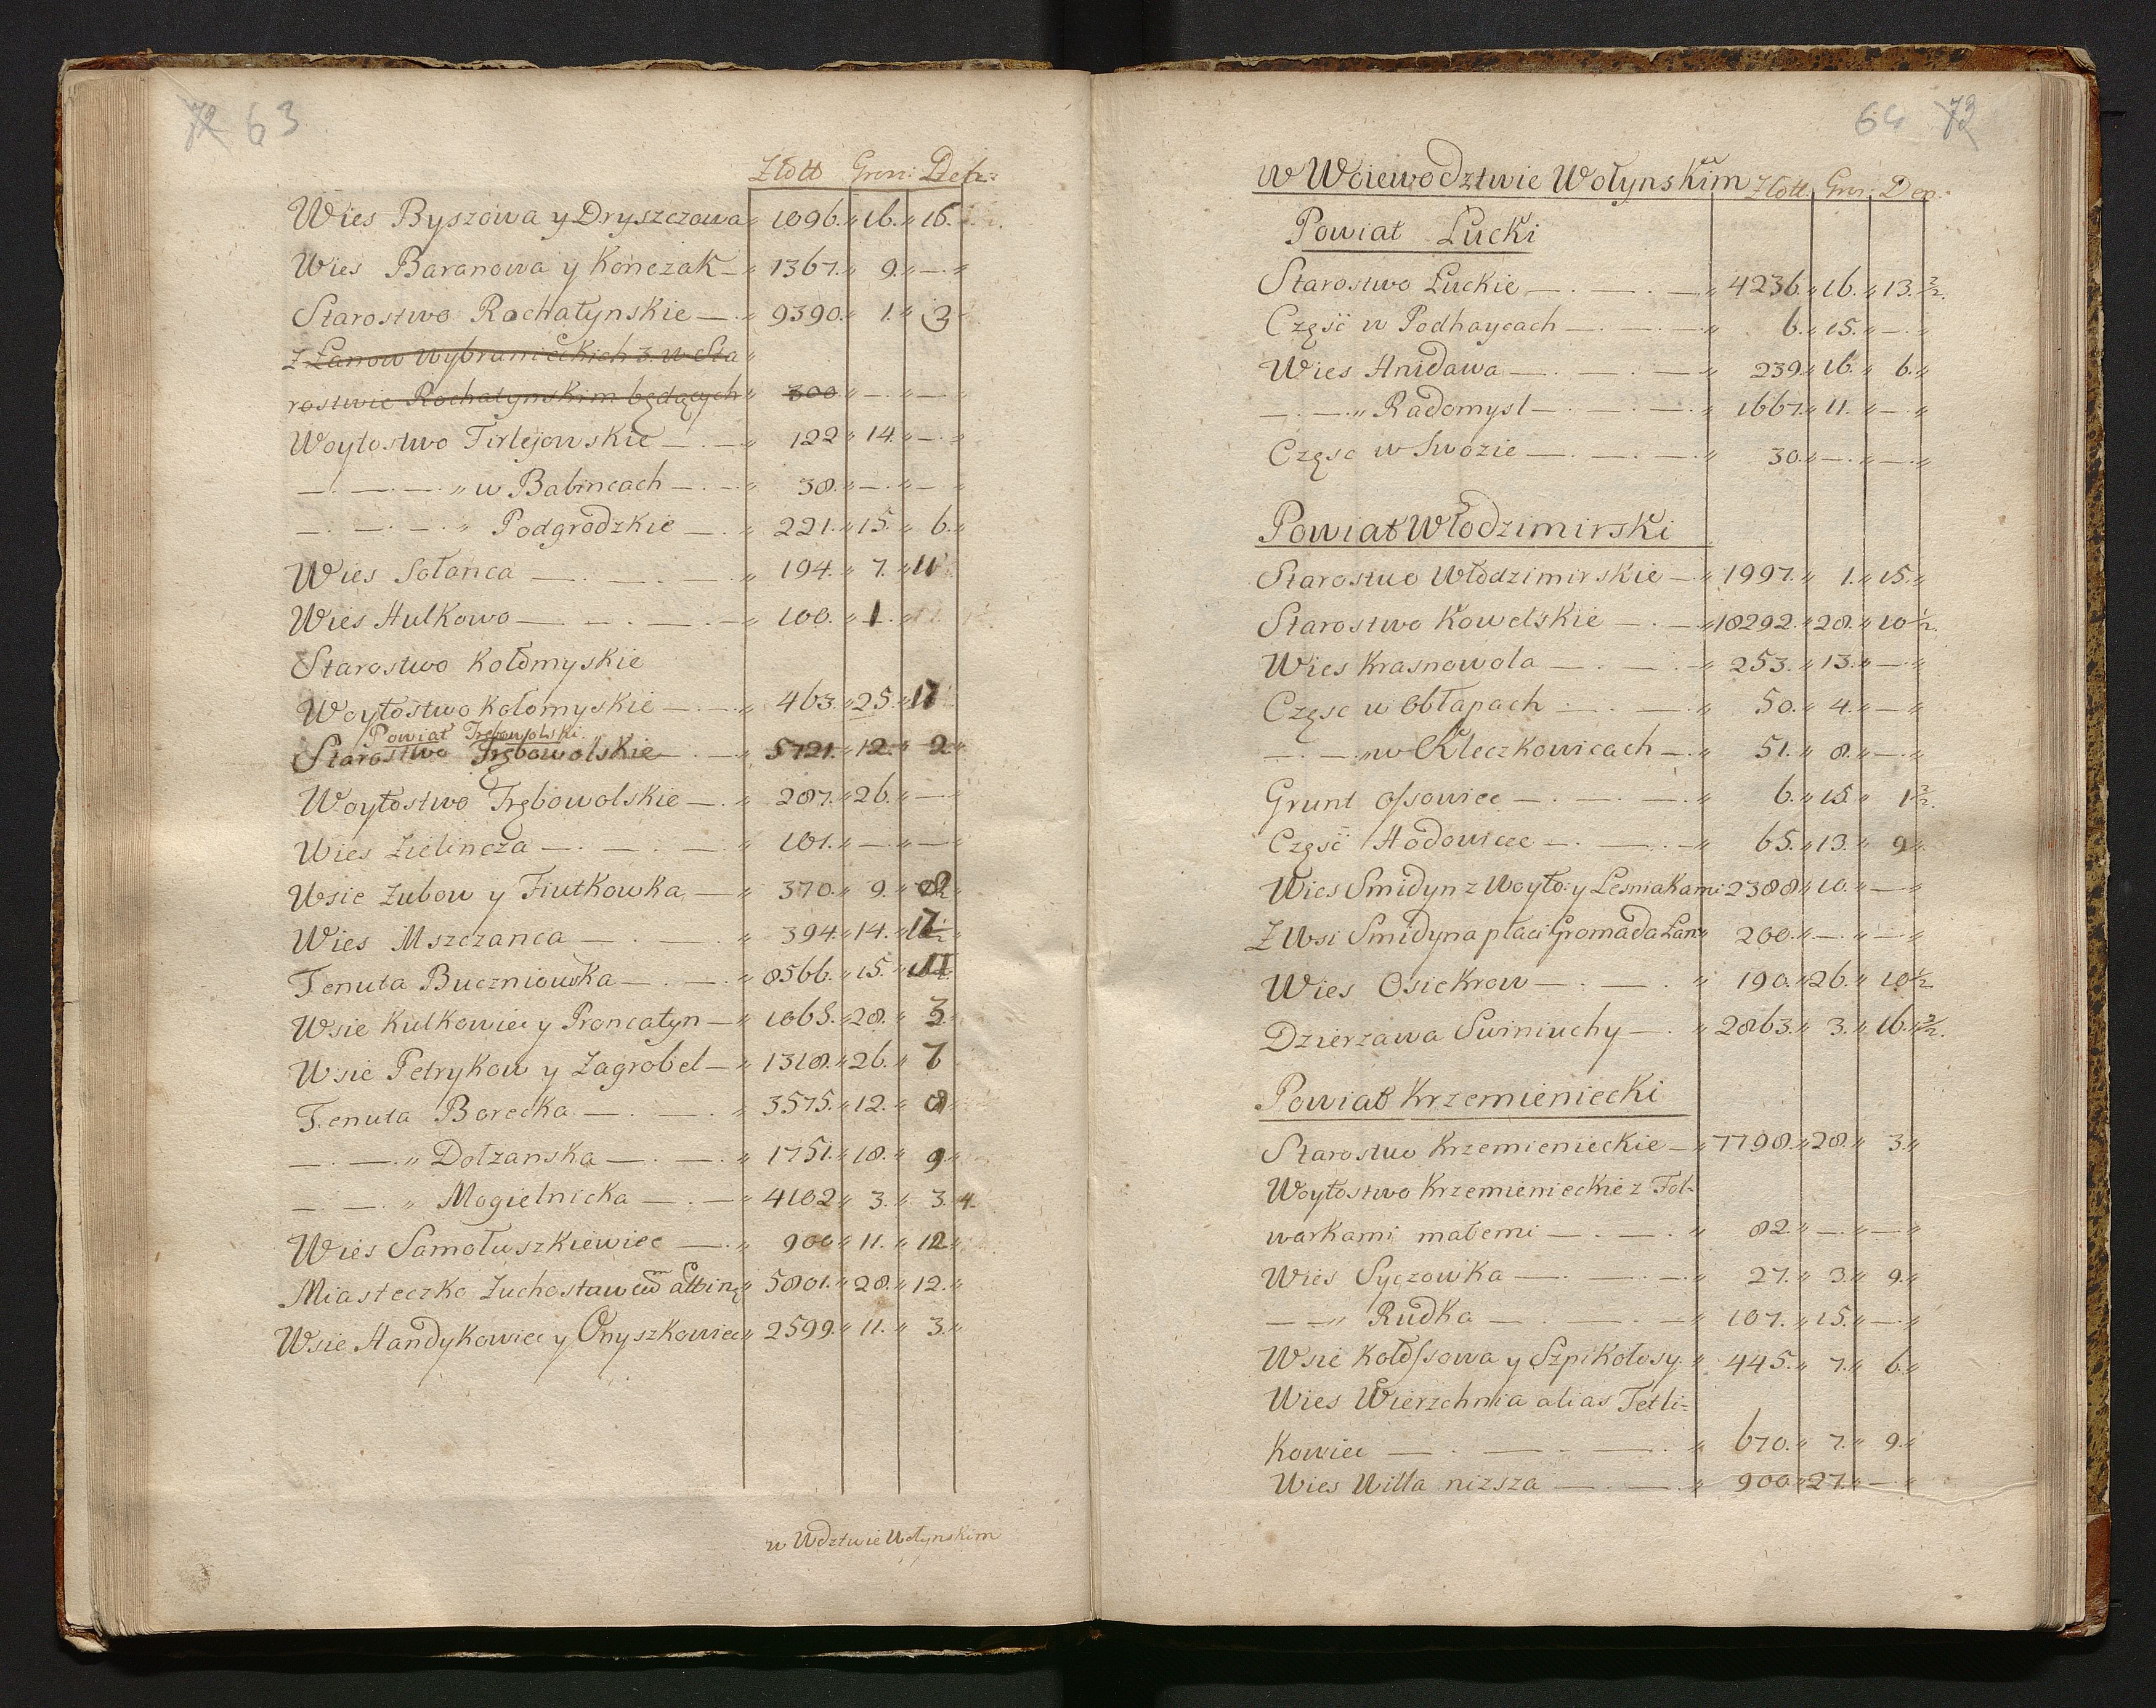 72 63
Złott Grosz: Den:
Wies Byszowa y Dryszczowa 1096. 16. 16.
Wies Baranowa y Kończak 1367. 9. —
Starostwo Rochatynskie 9390. 1. 3
Z Łanow Wybranieckich 3. w Sta
rostwie Rochatynskim będących 300 — —
Woytostwo Firlejowskie 122 14. —
— w Babincach 38. — —
— Podgrodzkie 221. 15. 6.
Wies Sołonca 194. 7. 11
Wies Hulkowo 100. 1.
Starostwo Kołomyskie
Woytostwo Kołomyskie 463. 25. 17
Powiat Trębowolski.
Starostwo Trębowolskie 5721. 12. 2
Woytostwo Trębowolskie 287. 26. —
Wies Zielincza 101. — —
Wsie Zubow y Fiutkowka 370. 9. 8
Wies Mszczanca 394. 14. 17
Tenuta Buczniowska 8566. 15. 11
Wsie Kulkowiec y Proncatyn 1065. 28. 3.
Wsie Petrykow y Zagrobel 1318. 26. 7
Tenuta Borecka 3575. 12. 8
— Dołzanska 1751. 18. 9
— Mogielnicka 4102 3. 3. 4.
Wies Samołuszkiewiec 900 11. 12
Miasteczko Zuchostaw cum attin. 5801. 28. 12.
Wsie Handykowiec y Onyszkowiec 2599. 11. 3.
w Wdztwie Wołynskim
64 73
w Woiewodztwie Wołynskim Złott. Gro: Den:
Powiat Łucki
Starostwo Łuckie 4236. 16. 13. ½.
Częsć w Podhaycach 6. 15. —
Wies Hnidawa 239. 16. 6.
— Radomysl 1667. 11. —
Częsc w Swozie 30. — —
Powiat Włodzimirski
Starostwo Włodzimirskie 1997. 1. 15.
Starostwo Kowelskie 18292. 28. 10 ½.
Wies Krasnowola 253. 13. —
Częsc w Obłapach 50. 4. —
— w Kleczkowicach 51. 8. —
Grunt Ossowiec 6. 15. 1 ½.
Częsć Hodowiec 65. 13. 9
Wies Smidyn z Woyto: y Lesniakami 2388. 10. —
Z Wsi Smidyna płaci Gromada Łan 200. — —
Wies Osiekrow 190. 26. 10 ½.
Dzierzawa Swiniuchy 2863. 3. 16. ½.
Powiat Krzemieniecki
Starostwo Krzemienieckie 7798. 28. 3
Woytostwo Krzemienieckie z Fol-
warkami małemi 82. — —
Wies Syczowka 27. 3. 9.
— Rudka 107. 15. —
Wsie Kołossowa y Szpikołosy 445. 7. 6.
Wies Wierzchnia alias Tetli=
kowiec 670. 7. 9.
Wies Willa nizsza 900. 27. —